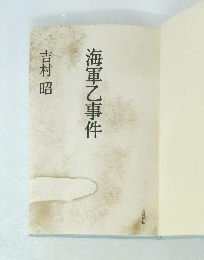 海軍乙事件
吉村昭